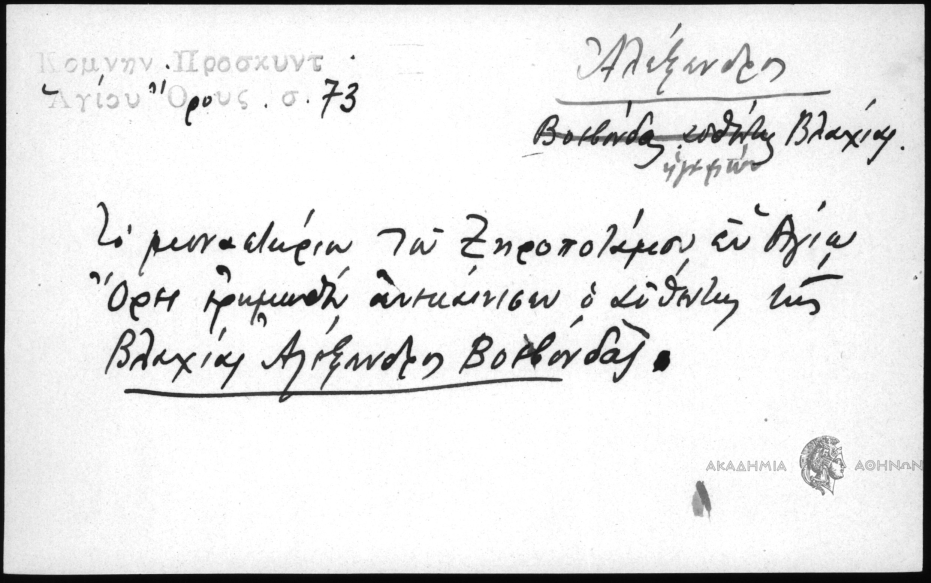 Κομνην. Προσκυντ
Ἁγίου Ὄρους. σ. 73
Ἀλέξανδρος
Βοεβόνδας αὐθέντης Βλαχίας.
ἡγεμὼν
Τὸ μοναστήριον τοῦ Ξηροποτάμου ἐν Ἁγίῳ
Ὄρει ἐρημωθὲν ἀνεκαίνισεν ὁ αὐθέντης τῆς
Βλαχίας Ἀλέξανδρος Βοεβόνδας.
ΑΚΑΔΗΜΙΑ ΑΘΗΝΩΝ